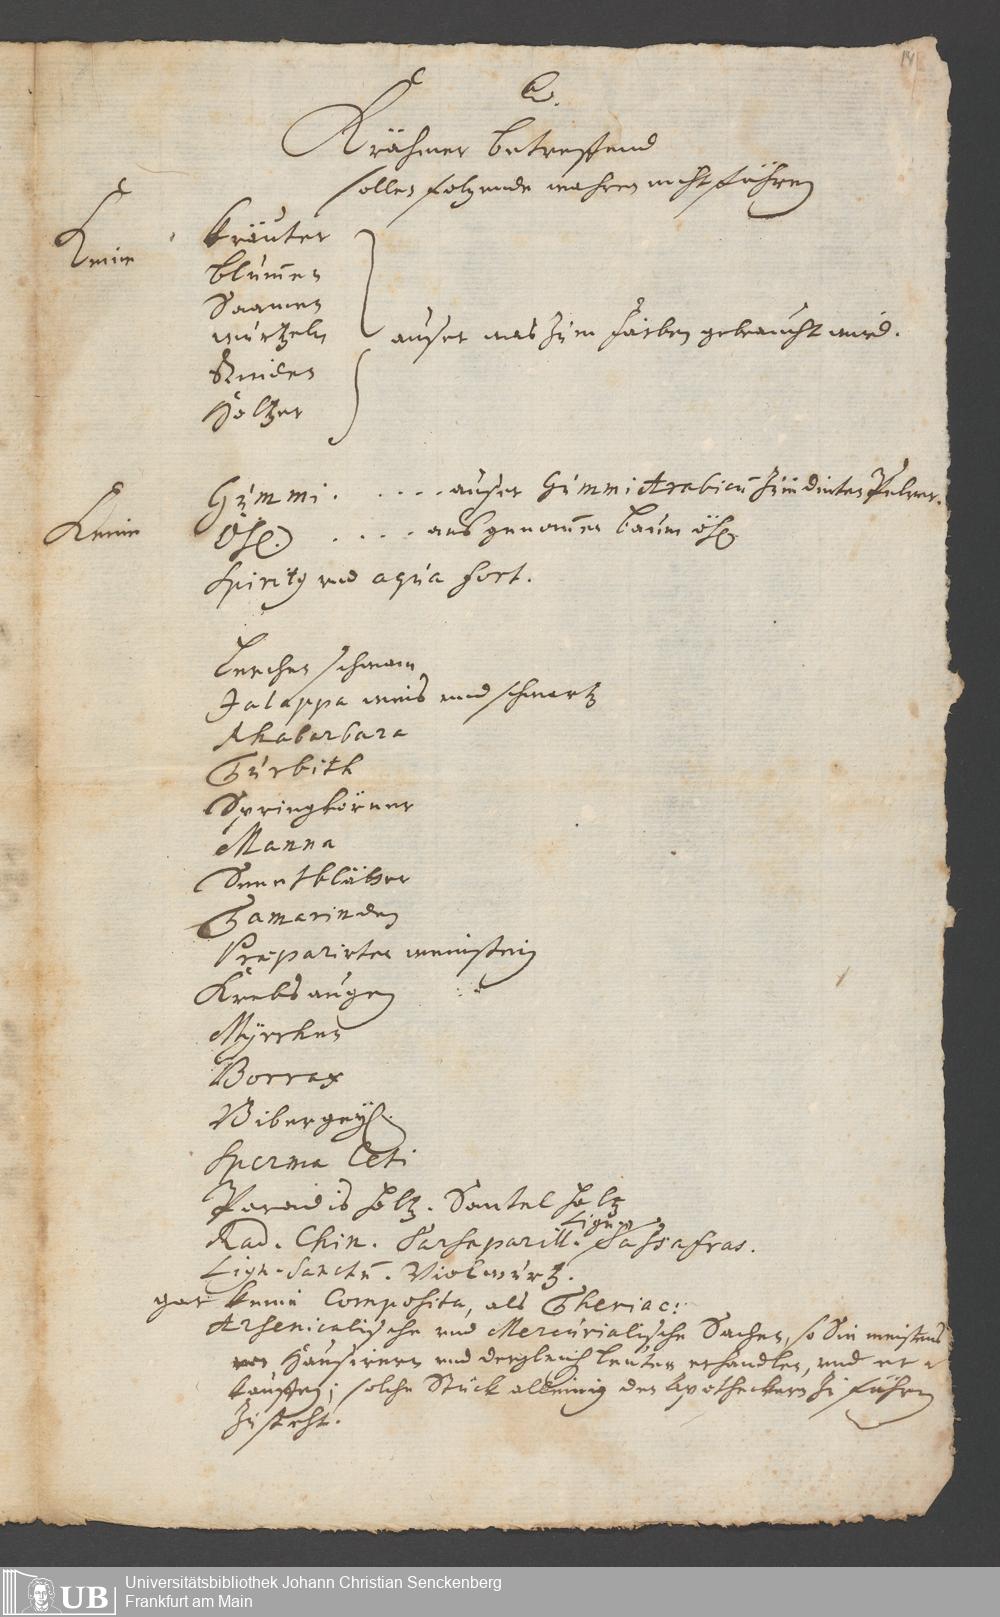 14
Krähmer betreffend
sollen folgende wahren nicht führen
Keine Kräuter
blumen
Saamen
wurtzeln außer was zum färben gebraucht wird.
Rinden
Höltzer
Keine Gummi. . . . . außer Gummi Arabicū zum dinten Pulver.
Öhl . . . . aus genommen baum öhl
Spiritq und aqua fort.
Lerchen schwam
Jalappa weis und schwartz
Rhabarbara
Turbith
Springkörner
Manna
Senetblätter
Tamarinden
Præparirten weinstein
Krebsaugen
Myrrhen
Borrax
Bibergeyl.
Sperma Ceti
Paradis holtz. Santel holtz
Rad. Chin. Sarsaparill. Lign. Sassafras.
Lign. Sanctū. Violwurtz.
gar keine Composita, als Theriac:
Arsenicalische und Mercurialische Sachen, so Sie meistens
von Hausirern und dergleich leuten erhandlen, und er
kauffen; solche Stück alleinig den Apotheckern zu führen
zusteht.
UB Universitätsbibliothek Johann Christian Senckenberg
Frankfurt am Main